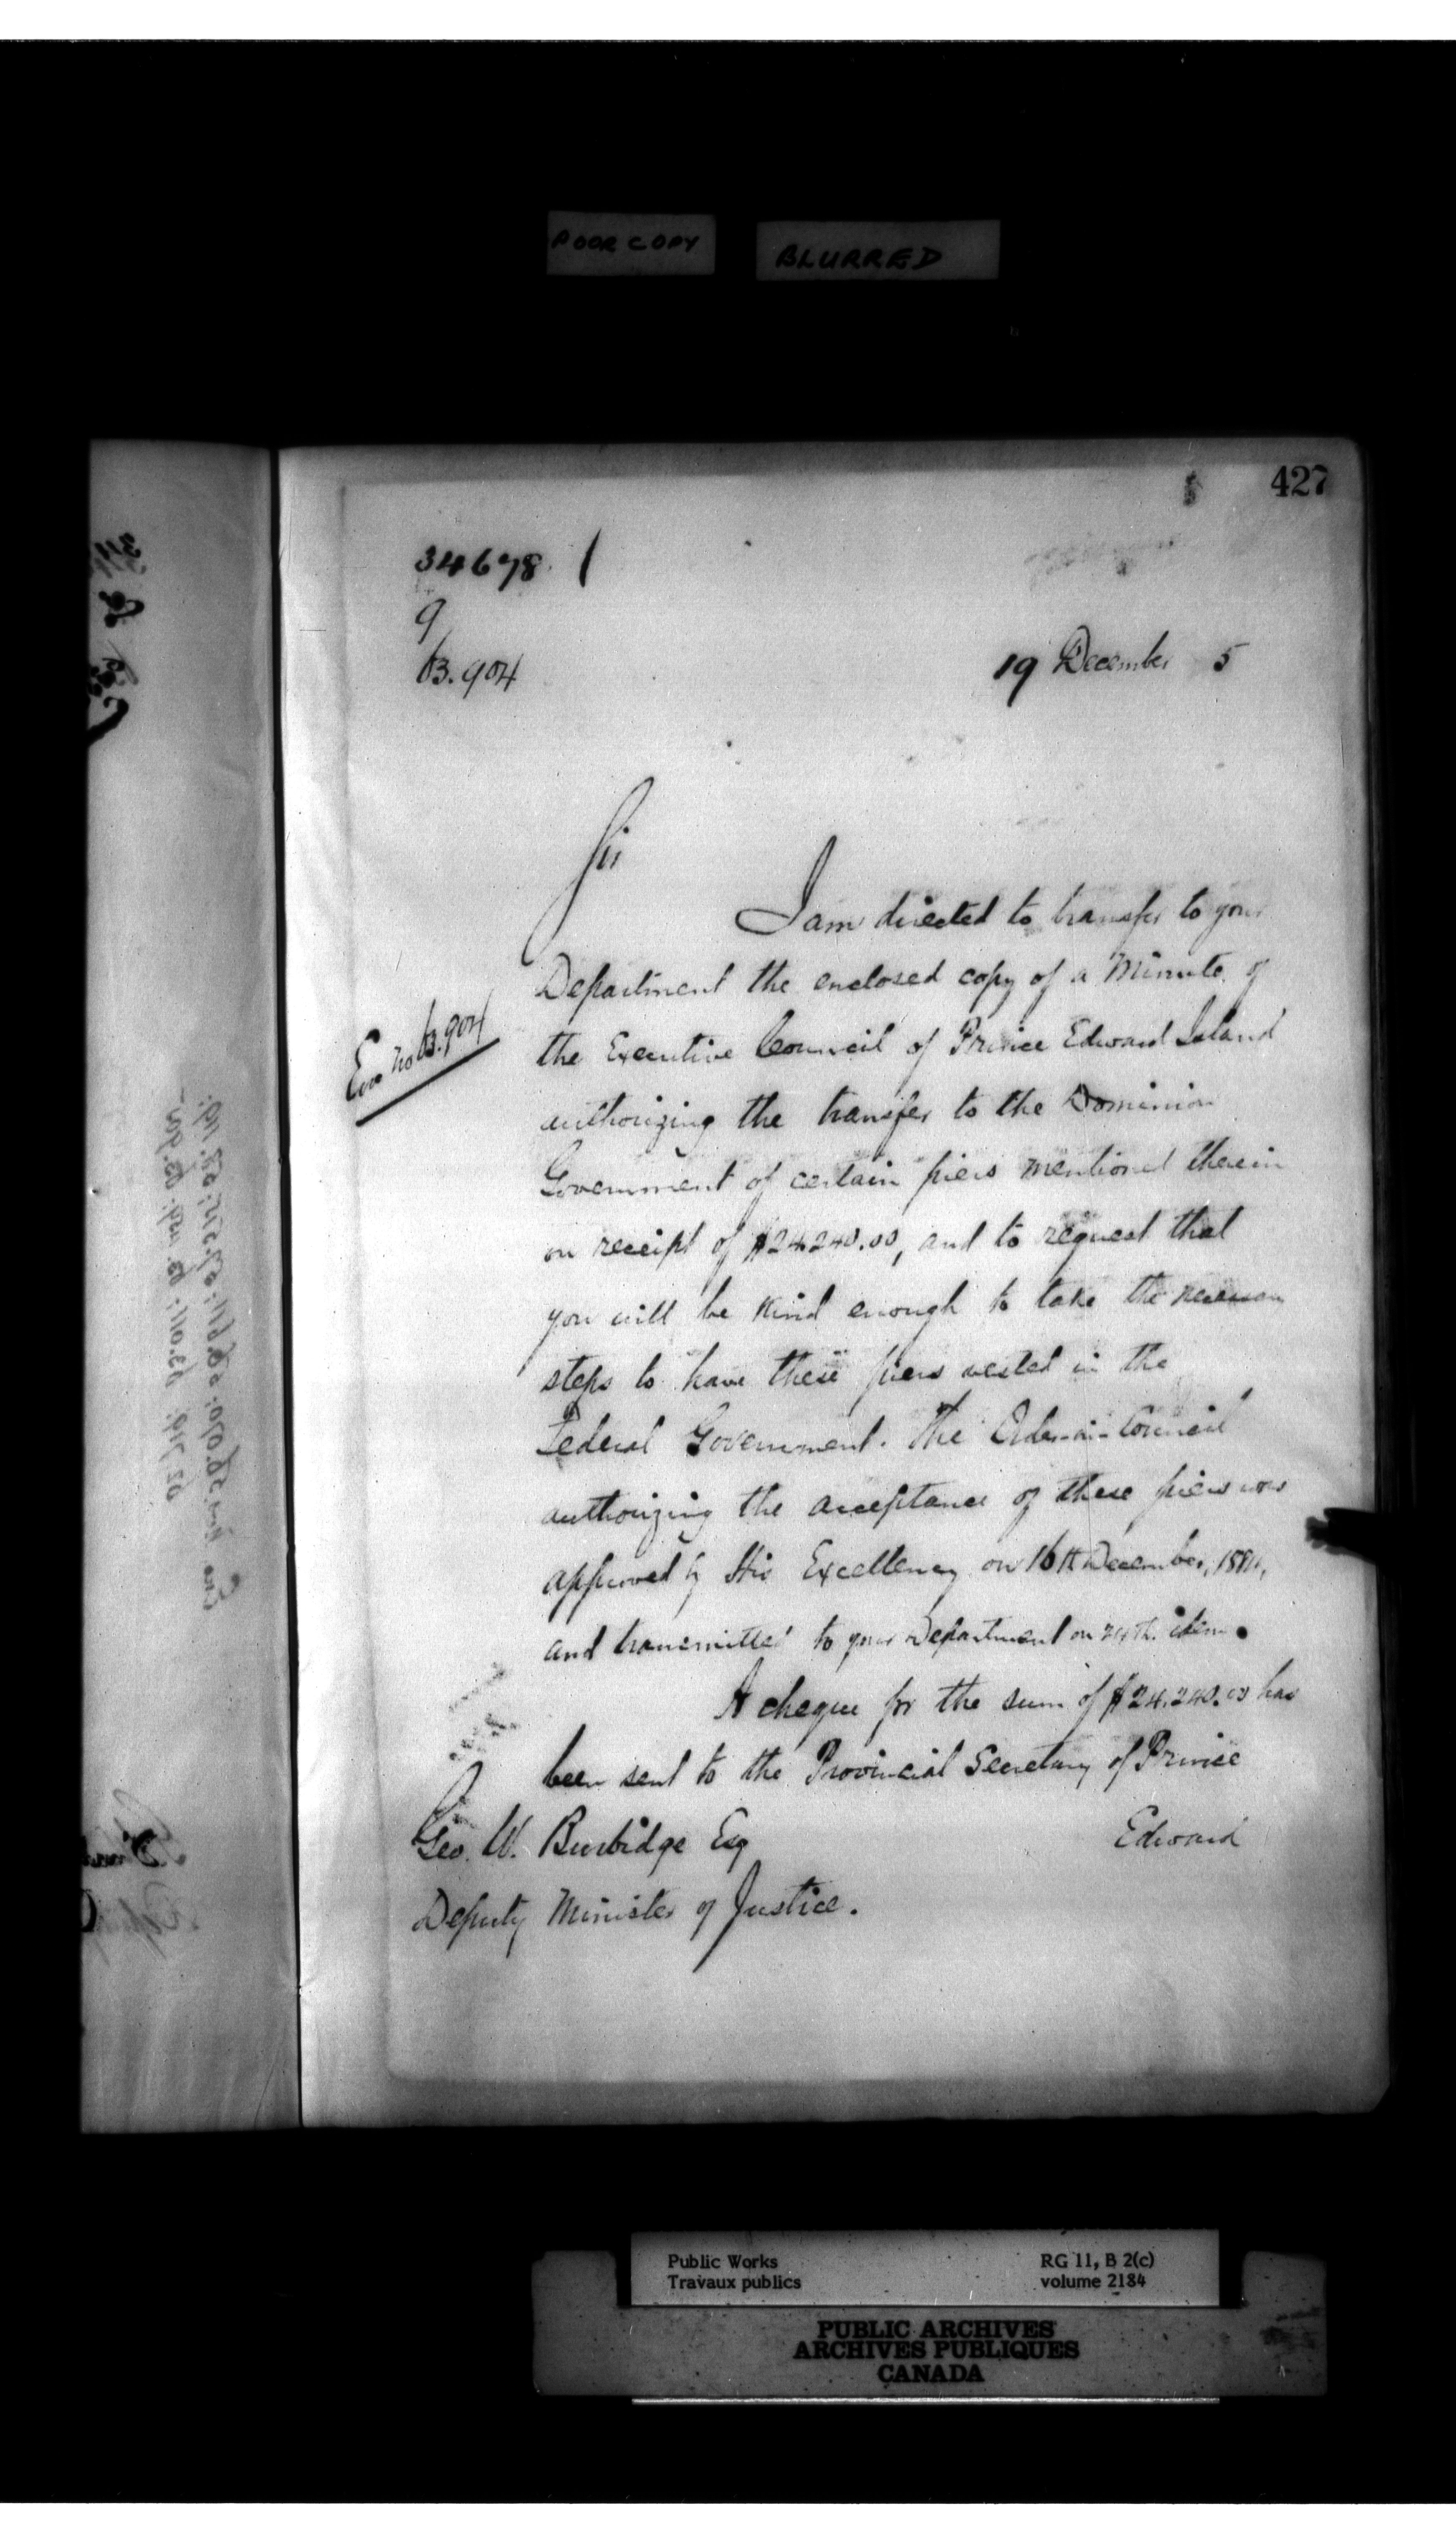 POOR COPY BLURRED
427
34678
9
63.904
19 December 5
Sir
I am directed to transfer to your
Department the enclosed copy of a Minute of
the Executive Council of Prince Edward Island
Enc no 63.904
authorizing the transfer to the Dominion
Government of certain piers mentioned therein
on receipt of $24240.00, and to request that
you will be kind enough to take the necessary
steps to have these piers vested in the
Federal Government. The Order-in-Council
authorizing the acceptance of these piers was
approved by His Excellency on 16th December,
and transmitted to your Department on idem.
A cheque for the sum of $24,240.00 has
been sent to the Provincial Secretary of Prince
Edward
Geo. W. Burbidge Esq
Deputy Minister of Justice.
Public Works RG 11, B 2(c)
Travaux publics volume 2184
PUBLIC ARCHIVES
ARCHIVES PUBLIQUES
CANADA